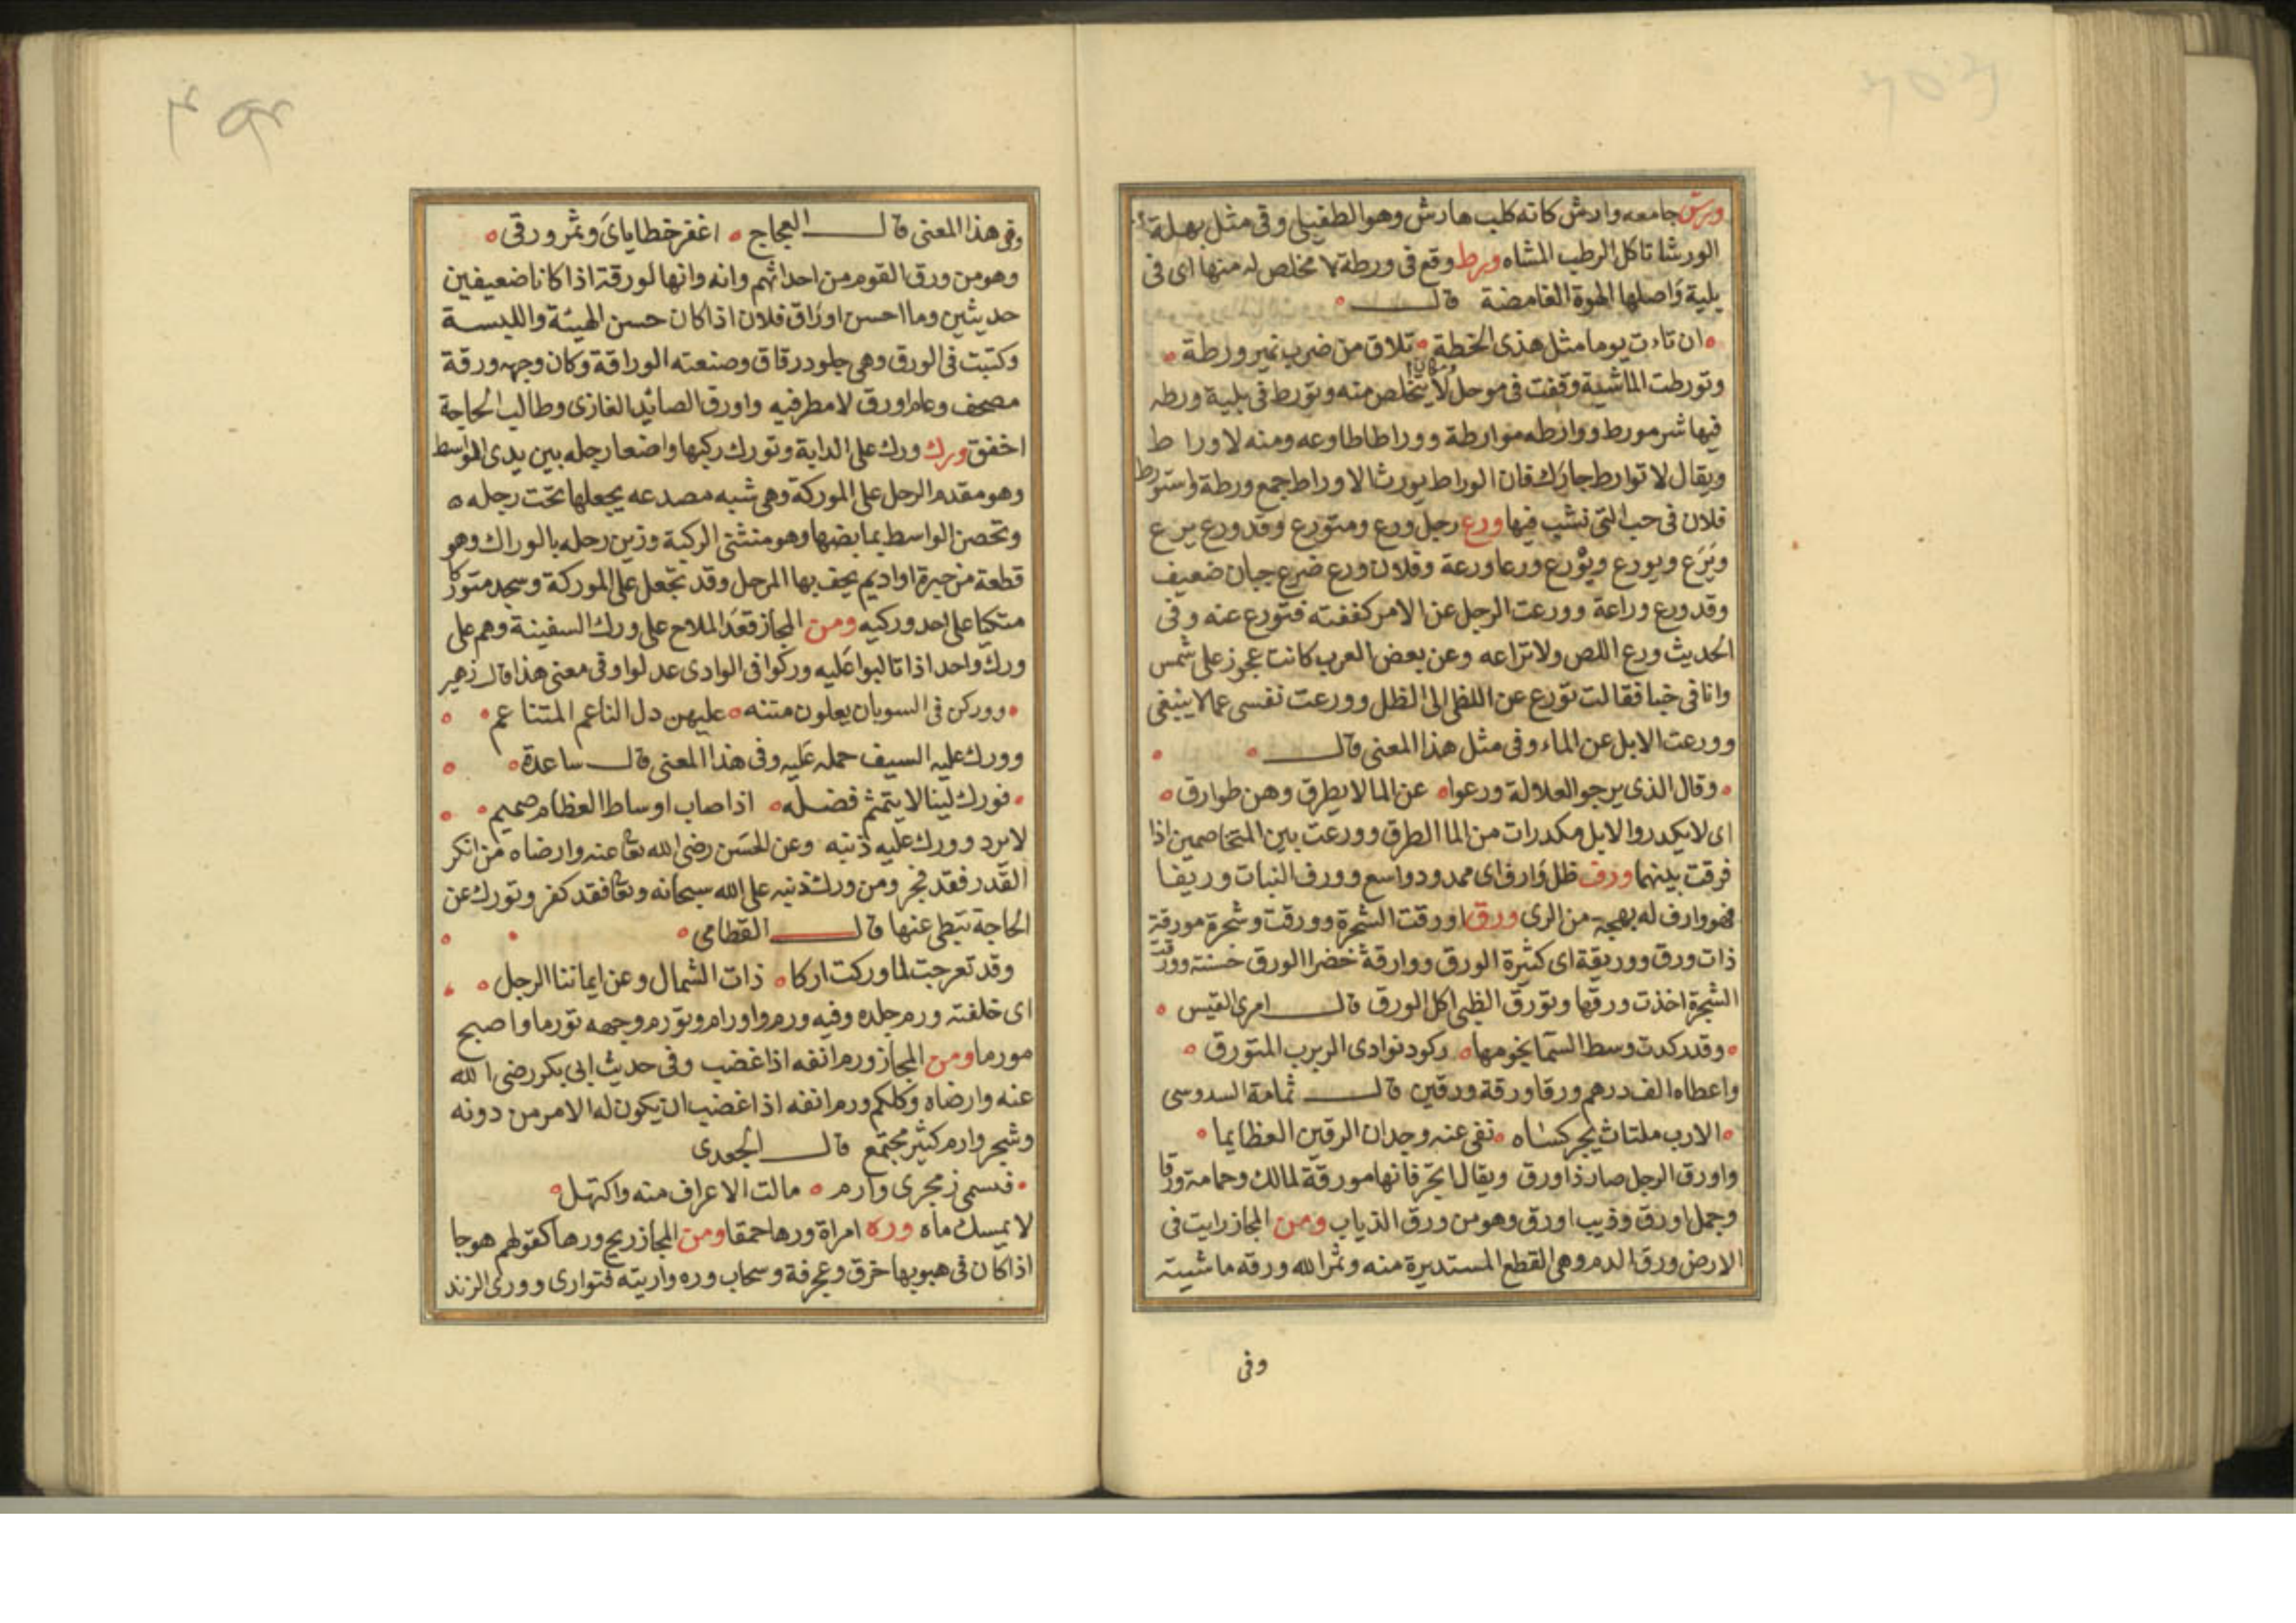 ورش جامعه وارش كانه كلب هارش وهو الطفيلى وفى مثل بهلة
الورشا تاكل الرطب المشاه ورط وقع فى ورطة لا مخلص له منها اى فى
بلية واصلها الهوة الغامضة قال
ان تات يوما مثل هذى الخطة تلاق من ضرب نمير ورطة
وتورطت الماشية وقفت فى موحل لا يتخلص منه وتورط فى بلية ورطه
فيها شر مورط ووارطه موارطة ووراطا طاوعه ومنه لا وراط
ويقال لا توارط جارك فان الوراط يورث الاوراط جمع ورطة واستورط
فلان فى حب التى نشب فيها ورع رجل ورع ومتورع وقد ورع يرع
ويرع ويورع ويؤرع ورعا ورعة وفلان ورع ضرع جبان ضعيف
وقد ورع وراعة وورعت الرجل عن الامر كففته فتورع عنه وفى
الحديث ورع اللص ولا تراعه وعن بعض العرب كانت عجوز على شمس
وانا فى خبا فقالت تورع عن اللظى الى الظل وورعت نفسى عما لا ينبغى
وورعت الابل عن الماء وفى مثل هذا المعنى قال
وقال الذى يرجو العلالة ورعوا عن الما لا يطرق وهن طوارق
اى لا يكدروا الابل مكدرات من الما الطرق وورعت بين المتخاصمين اذا
فرقت بينهما ورف ظل وارف اى ممدود واسع وورف النبات وريفا
فهو وارف له بهجة من الرى ورق اورقت الشجرة وورقت وشجرة مورقة
ذات ورق ووريقة اى كثيرة الورق ووارقة خضرا الورق حسنته وورقت
الشجرة اخذت ورقها وتورق الظبى اكل الورق قال امرى القيس
وقد ركدت وسط السما نجومها ركود نوادى الربرب المتورق
واعطاه الف درهم ورقا ورقة ورقين قال ثمامة السدوسى
الارب ملتاث يجر كساه نفى عنه وجدان الرقين العظايما
واورق الرجل صار ذا ورق ويقال اتجر فانها مورقة لمالك وحمامة ورقا
وجمل اورق وذيب اورق وهو من ورق الذياب ومن المجاز رايت فى
الارض ورق الدم وهى القطع المستديرة منه وثمر الله ورقه ماشيته
وفى
وفى هذا المعنى قال العجاج اغفر خطاياى وثمر ورقى
وهو من ورق القوم من احداثهم وانه وانها لورقة اذا كانا ضعيفين
حديثين وما احسن اوراق فلان اذا كان حسن الهيئة واللبسة
وكتبت فى الورق وهى جلود رقاق وصنعته الوراقة وكان وجهه ورقة
مصحف وعام اورق لا مطر فيه واورق الصائد الغازى وطالب الحاجة
اخفق ورك ورك على الدابة وتورك ركبها واضعا رجله بين يدى الواسط
وهو مقدم الرحل على الموركة وهى شبه مصدعه يجعلها تحت رجله
وتحصن الواسط بمابضها وهو منثنى الركبة وزين رحله بالوراك وهو
قطعة من حبرة او اديم يحف بها الرحل وقد تجعل على الموركة وسجد متوركا
متكيا على احد وركيه ومن المجاز قعد الملاح على ورك السفينة وهم على
ورك واحد اذا تالبوا عليه وركوا فى الوادى عدلوا وفى معنى هذا قال زهير
ووركن فى السوبان يعلون متنه عليهن دل الناعم المتناعم
وورك عليه السيف حمله عليه وفى هذا المعنى قال ساعدة
فورك لينا لا يثمثم فضله اذا صاب اوساط العظام صميم
لا يرد وورك عليه ذنبه وعن الحسن رضى الله تعا عنه وارضاه من انكر
القدر فقد فجر ومن ورك ذنبه على الله سبحانه وتعا فقد كفر وتورك عن
الحاجة تبطى عنها قال القطامى
وقد تعرجت لما وركت اركا ذات الشمال وعن ايماننا الرجل
اى خلفته ورم جلده وفيه ورم واورام وتورم وجهه تورما واصبح
مورما ومن المجاز ورم انفه اذا غضب وفى حديث ابى بكر رضى الله
عنه وارضاه وكلكم ورم انفه اذا غضب ان يكون له الامر من دونه
وشجر وارم كثير مجتمع قال الجعدى
فسمى زمجرى وارم مالت الاعراف منه واكتهل
لا يمسك ماه وره امراة ورها حمقا ومن المجاز ريح ورها كقولهم هوجا
اذا كان فى هبوبها خرق وعجرفة وسحاب وره واريته فتوارى وورى الزند